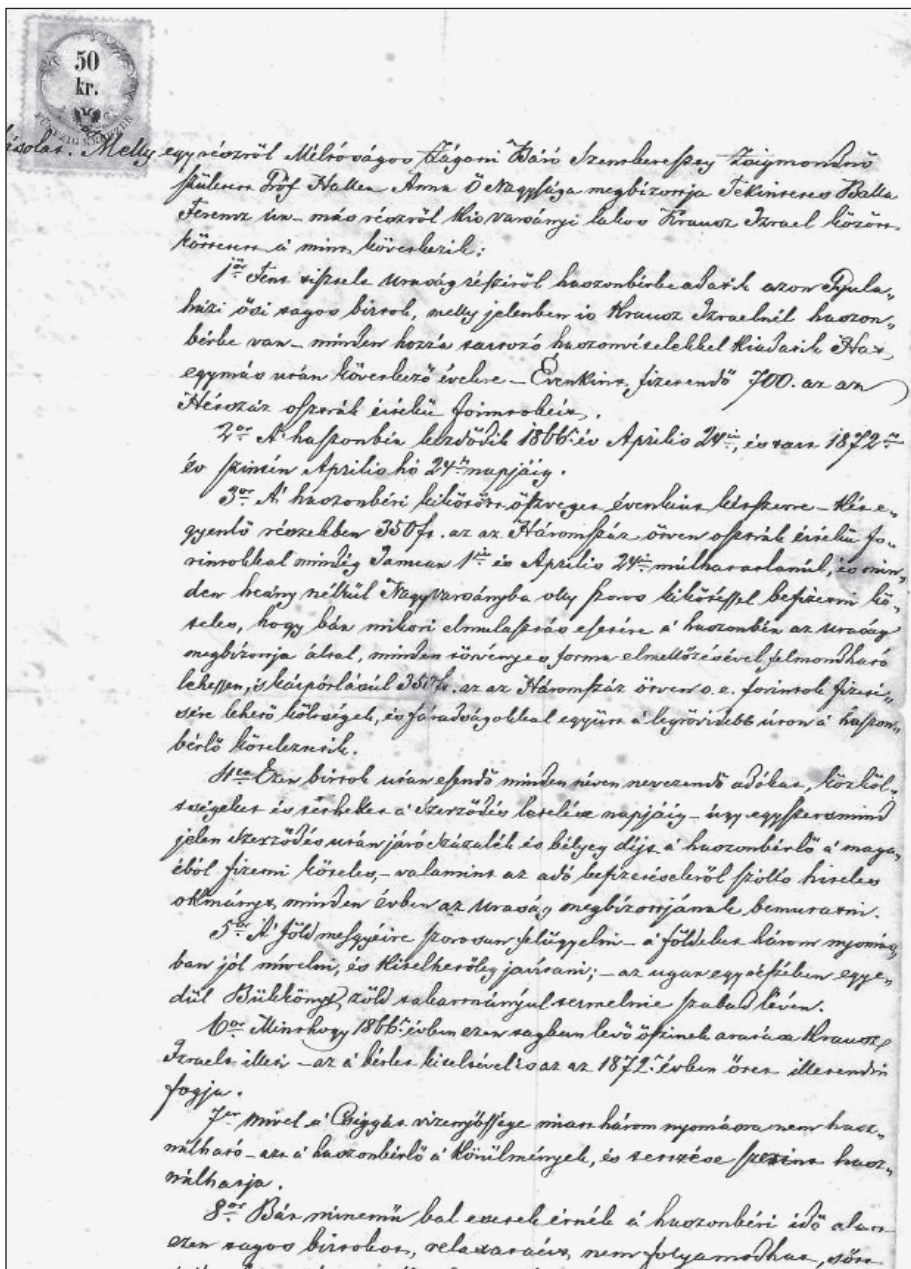 50
kr.
FÜNFZIG KREUZER
Melly egy részről Méltóságos Zágoni Báró Szentkereszty Zsigmondné
született Gróf Haller Anna ő Nagysága megbizottja Tekintetes Balla
Ferencz úr – más részről Kis varsányi lakos Krausz Izrael között
köttetett á mint következik:
1ör Fent tisztelt Uraság részéről haszonbérbe adatik azon Gyula„
házi ősi tagos birtok, melly jelenben is Krausz Izraelnél haszon„
bérbe van – minden hozzá tartozó haszonvételekkel kiadatik Hat
egymás után következő évekre – Évenkint fizetendő 700. az az
Hétszáz osztrák értékű forintokért.
2or A' haszonbér kezdődik 1866k év Aprilis 24én, és tart 1872ik
év szintén Aprilis hó 24k napjáig.
3or A' haszonbéri kikötött összveget évenkint kétszerre – Két e„
gyenlő részekben 350 fr. az az Háromszáz ötven osztrák értékű fo„
rintokkal mindég Januar 1én és Aprilis 24én múlhatatlanúl, és min„
den heány nélkül Nagyvarsányba oly szoros kikötéssel befizetni kö„
teles, hogy bár mikori elmulasztás esetére á haszonbér az Uraság
megbizottja által, minden törvényes forma elmellőzésével felmondható
lehessen, is kárpótlásúl 350 fr. az az Háromszáz ötven o. é. forintok fizeté„
sére lehető költségek, és fáradságokkal együtt á legrövidebb úton á haszon„
bérlő köteleztetik.
4er Ezen birtok után esendő minden néven nevezendő adókat, közköl„
tségeket és terheket á Szerződés keltére napjáig – úgy egyszersmind
jelen Szerződés után járó százalék és bélyeg díjt á haszonbérlő á magá„
éból fizetni köteles, – valamint az adó befizetésekről szólló hiteles
okmányt, minden évben az Uraság megbizottjának bemutatni.
5ör A' föld mesgyéire szorosan felügyelni – á földeket három nyomás„
ban jól mívelni, és kitelhetőleg javítani; – az ugar egy részében egye„
dül Bükkönyt, zöld takarmányul termelnie szabad lévén.
6or Minthogy 1866k évben ezen tagban levő őszinek aratása Krausz
Izraelt illeti – az á bérlet kiteltével is az az 1872k évben őtet illetendi
fogja.
7er mivel á' Csiggás vizenyőssége miatt három nyomásra nem hasz„
nálható – azt á haszonbérlő á körülmények, és tetszése szerint hasz„
nálhatja.
8or Bár minemű bal esetek érnék á haszonbéri idő alatt
ezen tagos birtokot, relaxatiót nem folyamodhat, sőtt